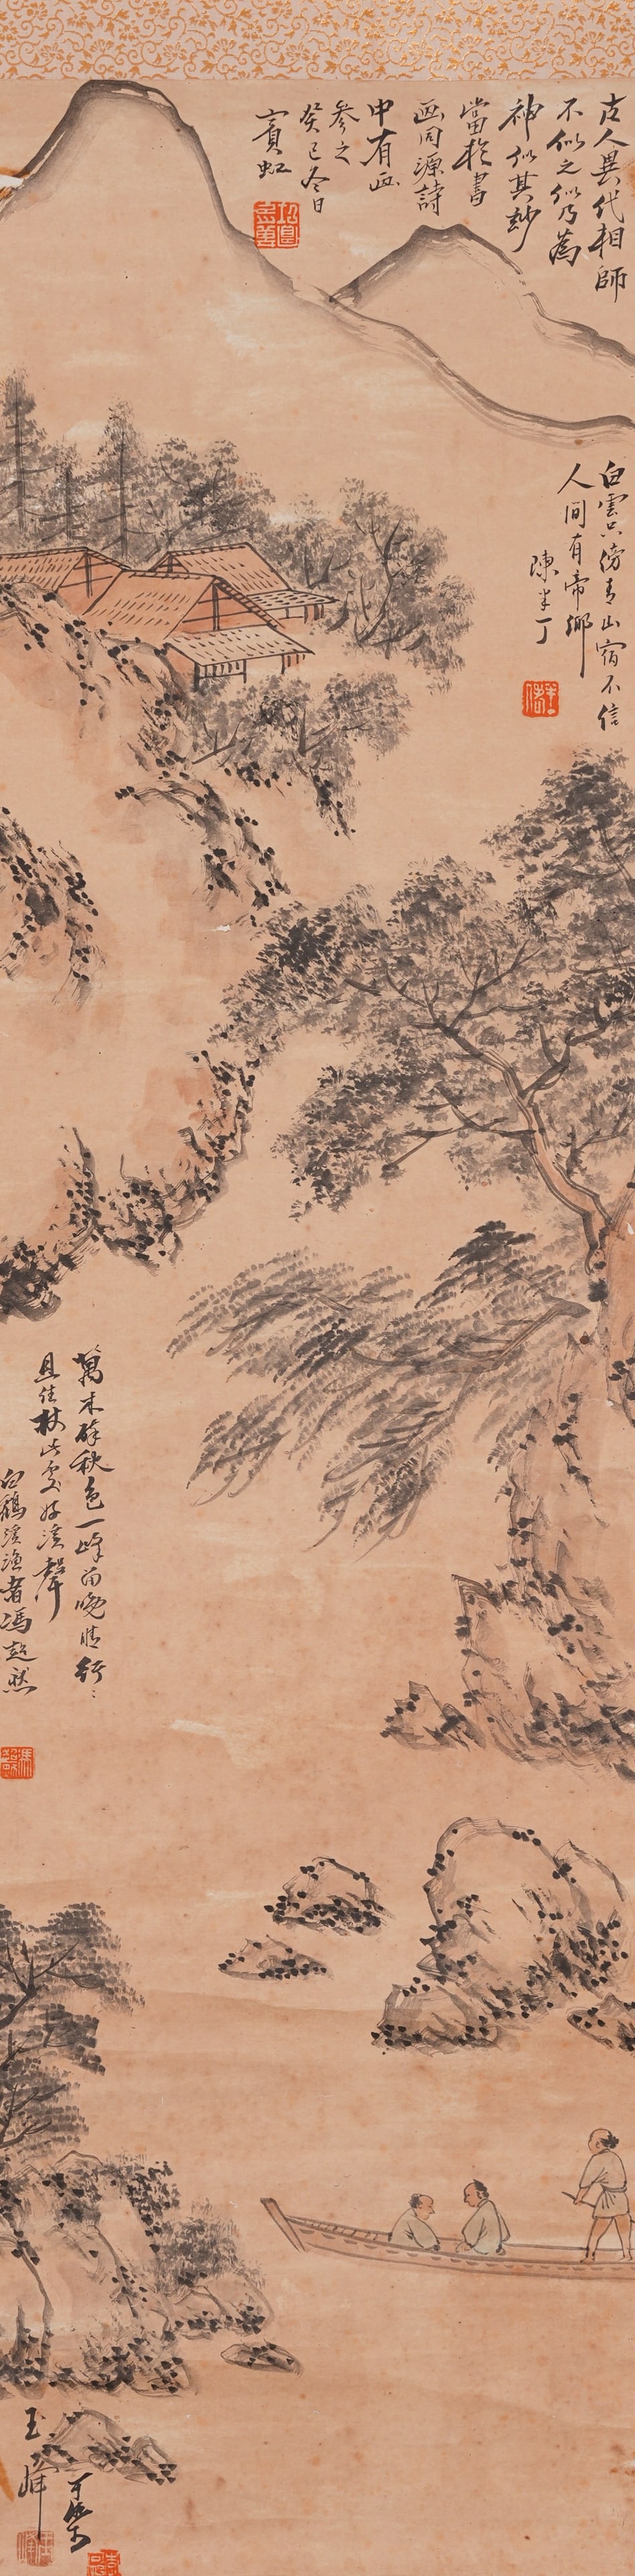 古人異代相師
不似之似乃為
神似其妙
當於書
画同源詩
中有画
參之
癸巳冬日
賓虹
白雲只傍青山宿不信
人間有帝鄉
陳半丁
萬木碎秋色一峰留晚晴行〻
且住杖此處好溪聲
白鶴溪漁者馮超然
玉峰